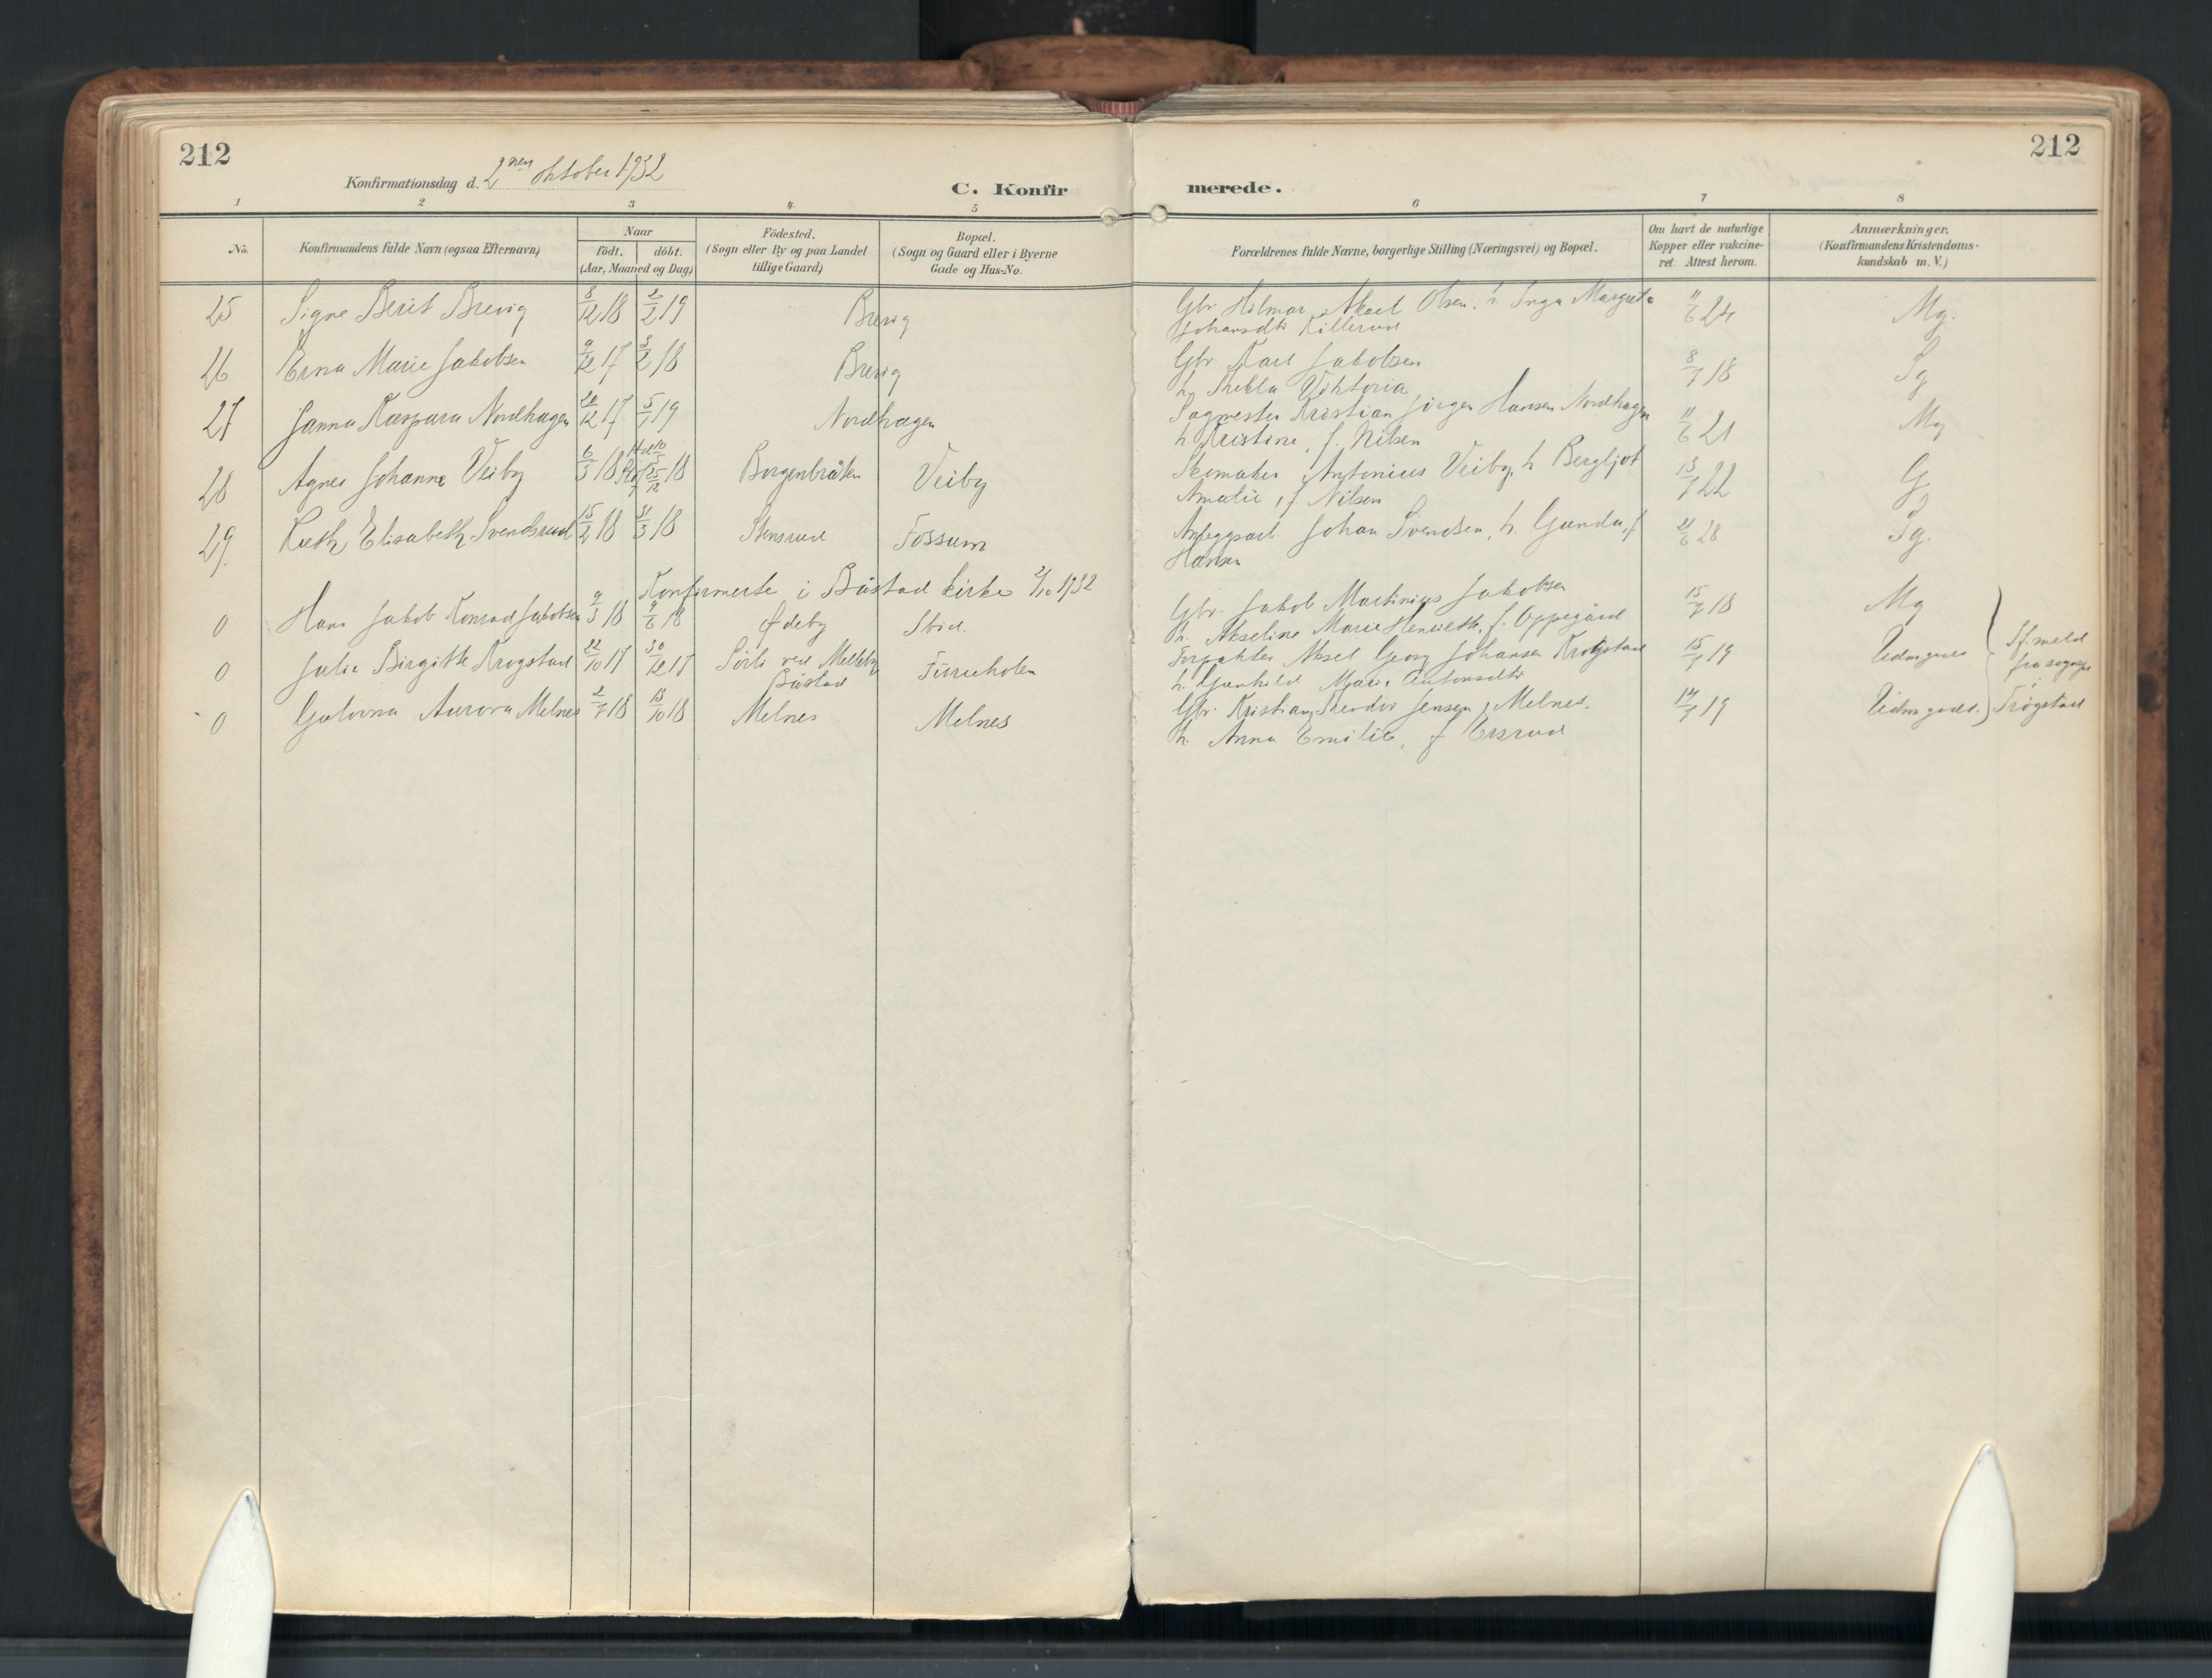 212
212
Konfirmationsdag d. 2nen oktober 1932
C. Konfir merede.
1 2 3 4 5 6 7 8
No.
Konfirmandens fulde Navn (ogsaa Efternavn)
Naar
födt. döbt.
(Aar, Maaned og Dag)
Födested.
(Sogn eller By og paa Landet
tillige Gaard)
Bopæl.
(Sogn og Gaard eller i Byerne
Gade og Hus-No.
Forældrenes fulde Navne, borgerlige Stilling (Næringsvei) og Bopæl.
Om havt de naturlige
Kopper eller vakcine-
ret. Attest herom.
Anmærkninger.
(Konfirmandens Kristendoms-
kundskab m. V.)
25 Signe Berit Brevig 8/12 18 2/2 19 Brevig Gbr. Hilmar Aksel Olsen. h. Inga Margrete 11/6 24 Mg.
Johansdtr Killerud
26 Erna Marie Jakobsen 9/12 17 3/2 18 Brevig Gbr Karl Jakobsen 8/7 18 Sg
h. Viktoria
27 Janna Kaspara Nordhagen 20/12 17 5/1 19 Nordhagen Sagmester Kristian Jörgen Hansen Nordhagen 11/6 21 Mg
h Kristine, f. Nilsen
28 Agnes Johanne Veiby 6/3 18 18 Borgenbråten Veiby Skomaker Antonius Veiby, h Bergljot 13/7 22 G
Amalie, f Nilsen
29. Ruth Elisabeth Svendsrud 15/2 18 31/3 18 Stensrud Fossum Anleggsarb. Johan Svendsen, h. Gunda, f 21/6 28 Sg.
Hansen
Konfirmerte i Båstad kirke 2/10 1932
0 Hans Jakob Konrad Jakobsen 9/3 18 9/6 18 Ödeby Sbid. Gbr. Jakob Martinius Jakobsen 15/7 18 Mg
h. Akseline Marie Henriette, f. Oppegård
0 Julie Birgitte Krogstad 22/10 17 30/12 17 Sörli ved Melleby Furuholen Forpakter Aksel Georg Johansen Krogstad 15/7 19 Udmgodt
Båstad h. Gunhild Marie Antonsdtr
0 Galovna Aurora Melnes 2/7 18 13/10 18 Melnes Melnes Gbr. Kristian Theodor Jensen, Melnes. 14/7 19 Udmgodt.
h. Anna Emilie, f Ersrud
If. meld
fra sognepr
i
Trögstad